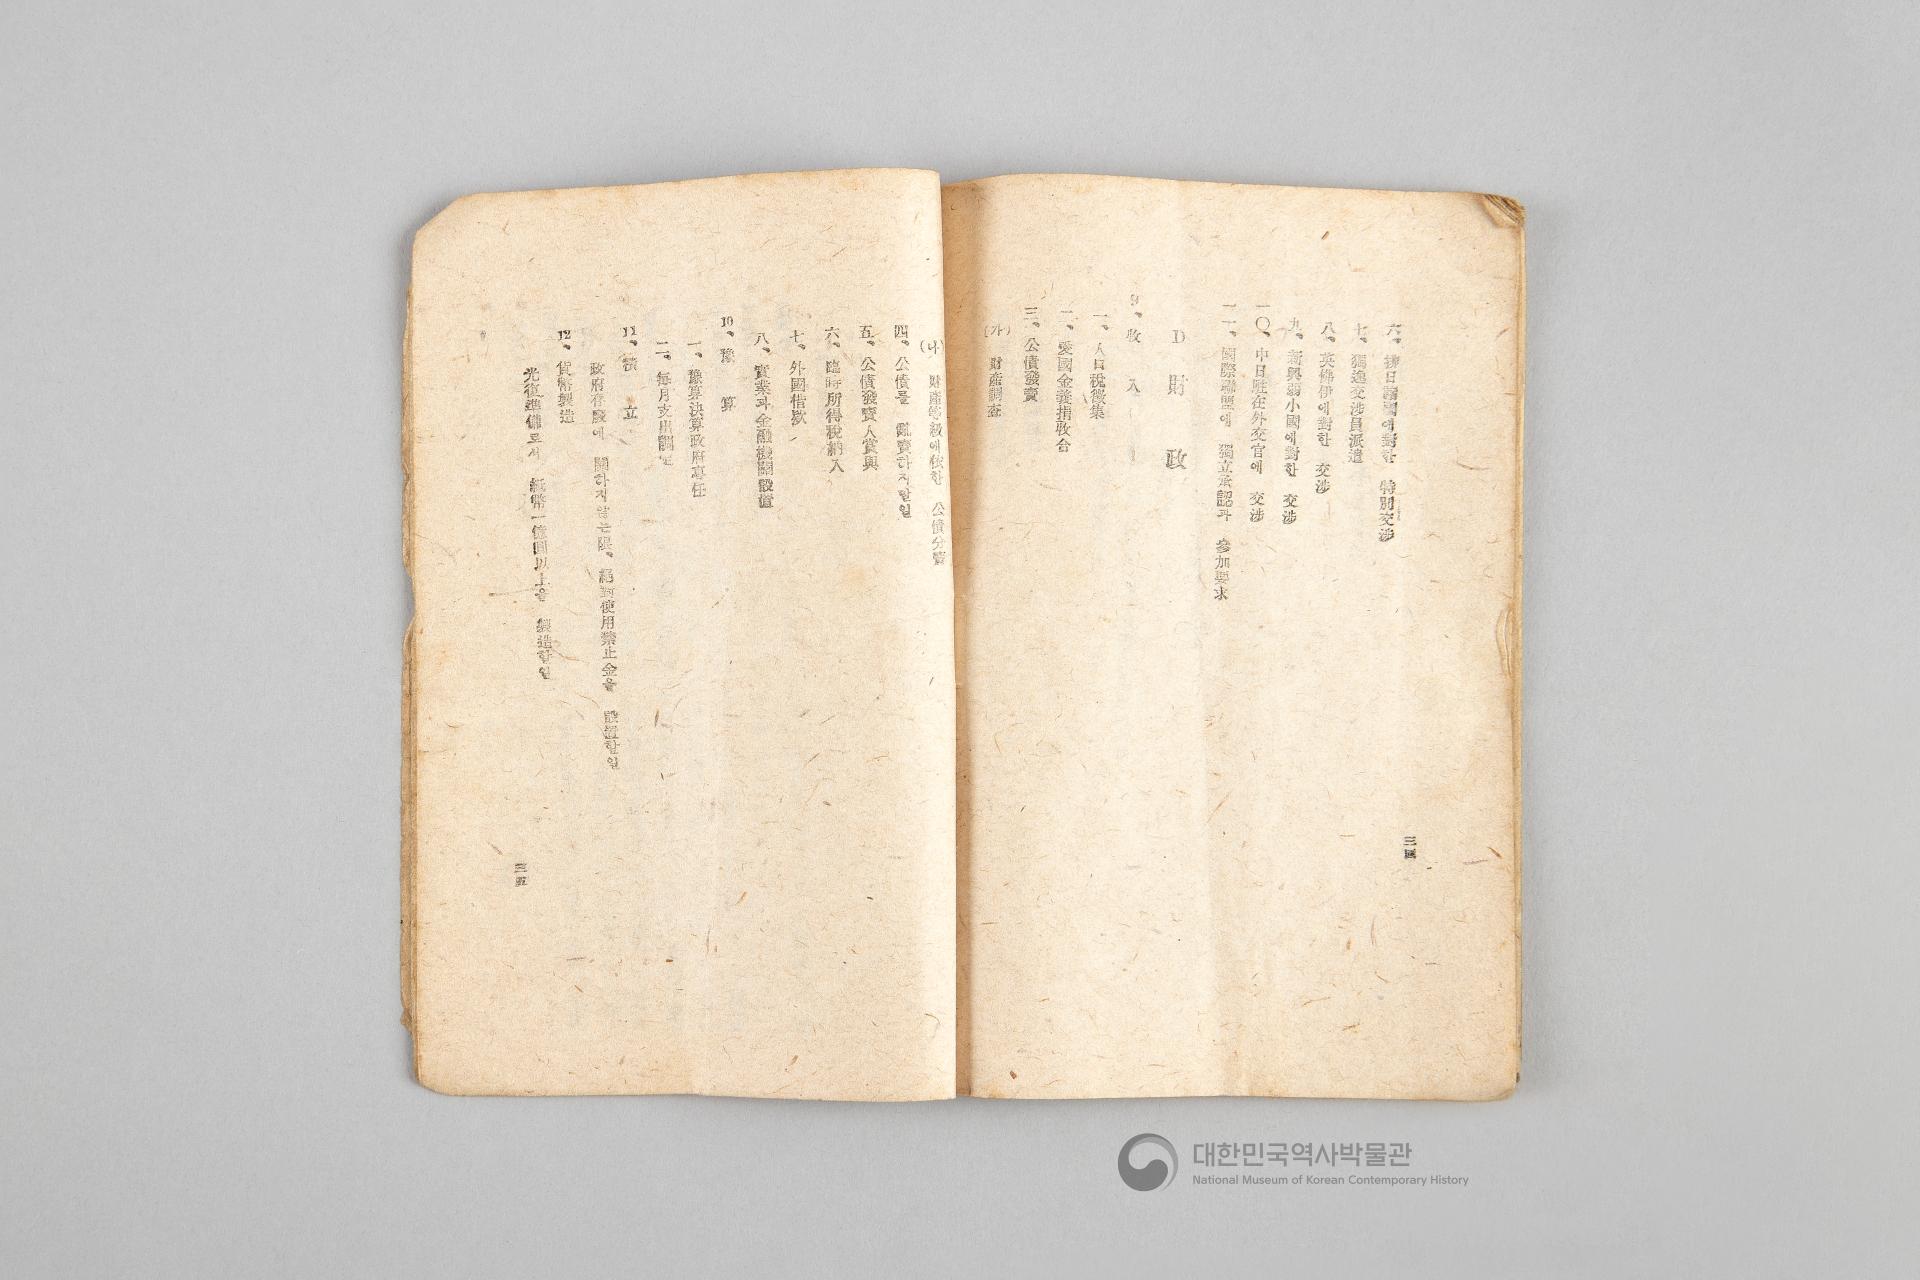 六、排日諸國에對한 特別交涉
七、獨逸交涉員派遣
八、英佛伊에對한 交涉
九、新興弱小國에對한 交涉
一〇、中日駐在外交官에 交涉
一一、國際聯盟에 獨立承認과 參加要求
D 財 政
9、收 入
一、人口稅徵集
二、愛國金義捐收合
三、公債發賣
(가) 財產調査
三四
(나) 財產等級에依한 公債分賣
四、公債를 亂賣하지말일
五、公債發賣人賞與
六、臨時所得稅納入
七、外國借欵
八、實業과金融機關設置
10、豫 算
一、豫算決算政府專任
二、每月支出調定
11、積 立
政府存廢에 關하지않는限、絕對使用禁止金을 設置할일
12、貨幣製造
光復準備로서 紙幣一億圓以上을 製造할일
三五
대한민국역사박물관
National Museum of Korean Contemporary History